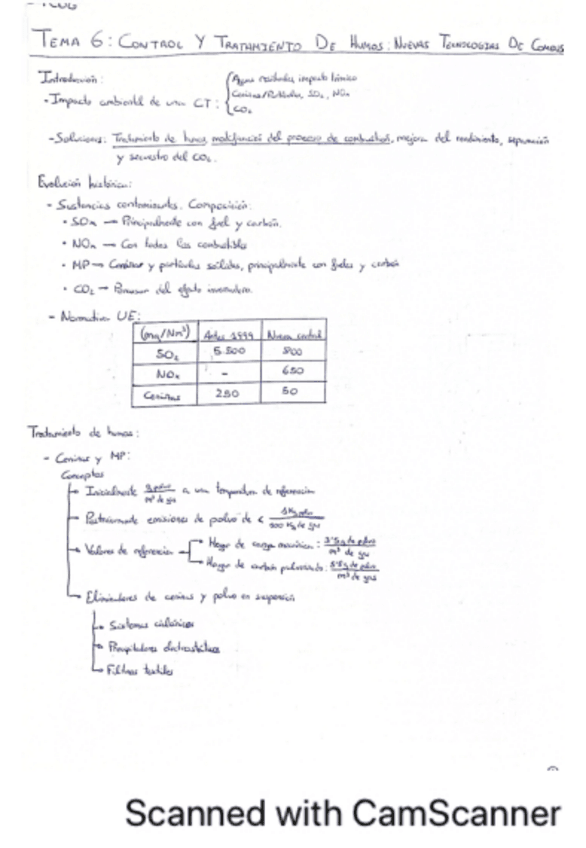 TEMA 6: CONTROL Y TRATAMIENTO DE HUMOS: NUEVAS TECNOLOGIAS DE
Introducción:
Aguas residuales, impacto térmico
- Impacto ambiental de una CT: Cenizas/Partículas, SO₂, NOx
CO₂
- Soluciones: Tratamiento de humos, modificación del proceso de combustión, mejora del rendimiento, separación
y secuestro del CO₂.
Evolución histórica:
- Sustancias contaminantes. Composición:
• SOx → Principalmente con fuel y carbón.
• NOx → Con todos los combustibles
• MP → Cenizas y partículas sólidas, principalmente con fueles y carbón
• CO₂ → Precursor del efecto invernadero.
- Normativa UE:
(mg/Nm³) Antes 1999 Nueva central
SO₂ 5.500 800
NOx - 650
Cenizas 250 50
Tratamiento de humos:
- Cenizas y MP:
Conceptos
Inicialmente g polvo / m³ de gas a una temperatura de referencia
Posteriormente emisiones de polvo de < 1 Kg polvo / 500 Kg de gas
Valores de referencia
Hogar de carga mecánica: g de polvo / m³ de gas
Hogar de carbón pulverizado: g de polvo / m³ de gas
Eliminadores de cenizas y polvo en suspensión
Sistemas ciclónicos
Precipitadores electrostáticos
Filtros textiles
Scanned with CamScanner